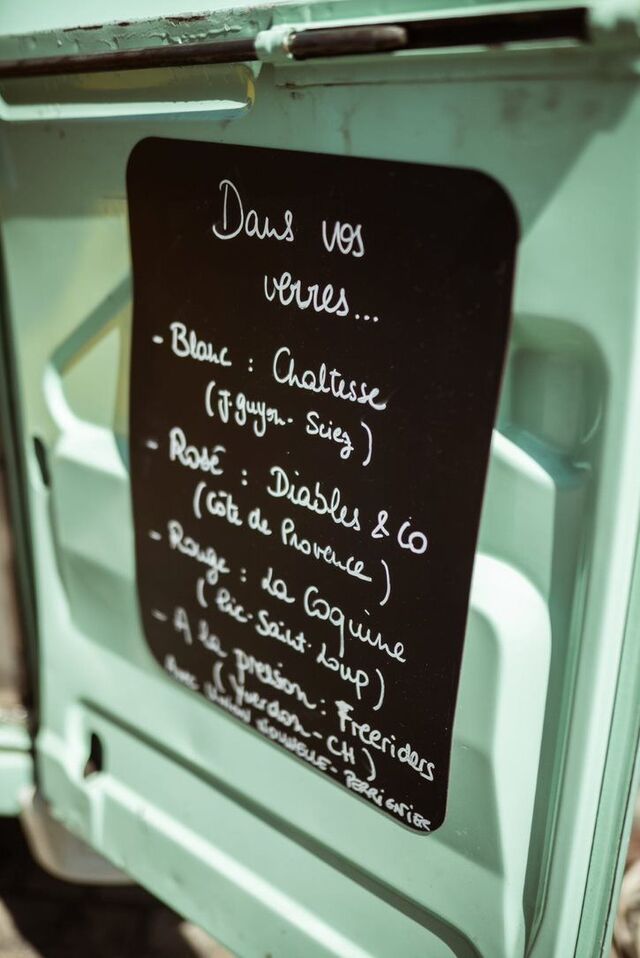 Dans vos
verres...
- Blanc : Chaltesse
(J. Guyon - Sciez)
- Rosé : Diables & Co
(Côte de Provence)
- Rouge : La Coquine
(Pic-Saint-Loup)
- A la pression : Freeriders
(Yverdon-CH)
AVEC UNION NOUVELLE - PERRIGNIER